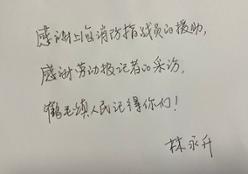 感谢上海消防指战员的援助,
感谢劳动报记者的采访,
鹤毛镇人民记得你们!
林永升